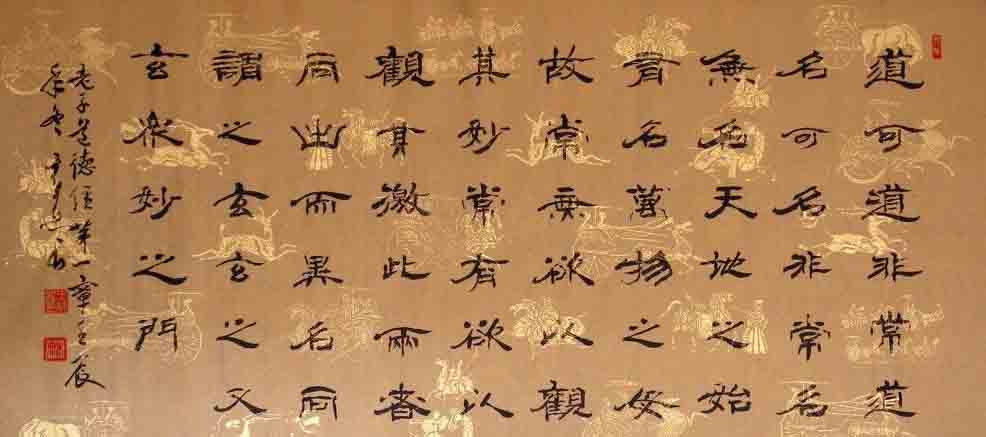 道可道非常道
名可名非常名
無名天地之始
有名萬物之母
故常無欲以觀
其妙常有欲以
觀其徼此兩者
同出而異名同
謂之玄玄之又
玄衆妙之門
老子道德经第一章壬辰
年冬